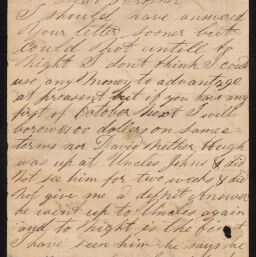 Dear Brother
I should have answered
your letter sooner but
could not untill to
night I dont think I could
use any money to advantage
at preasent but if you have any
first of October next I will
borrow 800 dollars on same
terms no David Mother Hugh
was up at Uncles Johns & did
not see him for two weeks & did
not give me a defnit answer
he went up to Uncles again
and to night is the first
I have seen him he says he